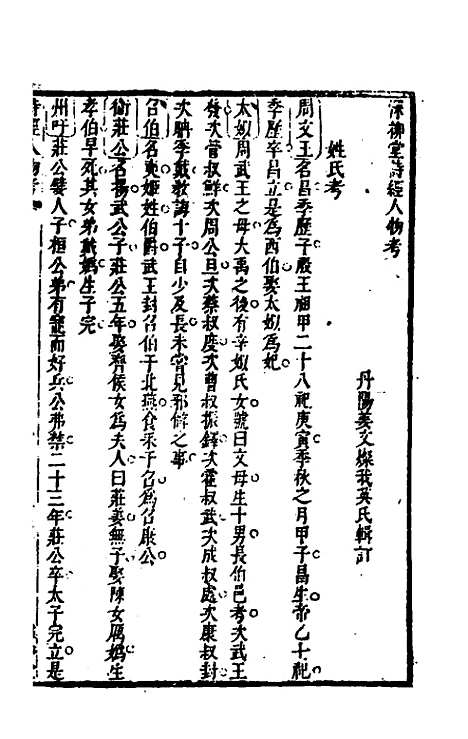 深柳堂詩經人物考
丹陽姜文燦我英氏輯訂
姓氏考
周文王名昌季歷子殷王祖甲二十八祀庚寅季秋之月甲子昌生帝乙十祀
季歷卒昌立是為西伯娶太姒為妃
太姒周武王之母大禹之後有莘姒氏女號曰文母生十男長伯邑考次武王
發次管叔鮮次周公旦次蔡叔度次曹叔振鐸次霍叔武次成叔處次康叔封
次聃季載教誨十子自少及長未嘗見邪僻之事
召伯名奭姬姓伯爵武王封召伯于北燕食采于召為召康公
衞莊公名揚武公子莊公五年娶齊侯女為夫人曰莊姜無子娶陳女厲媯生
孝伯早死其女弟戴媯生子完
州吁莊公嬖人子桓公弟有寵而好兵公弗禁二十三年莊公卒太子完立是
詩經人物考